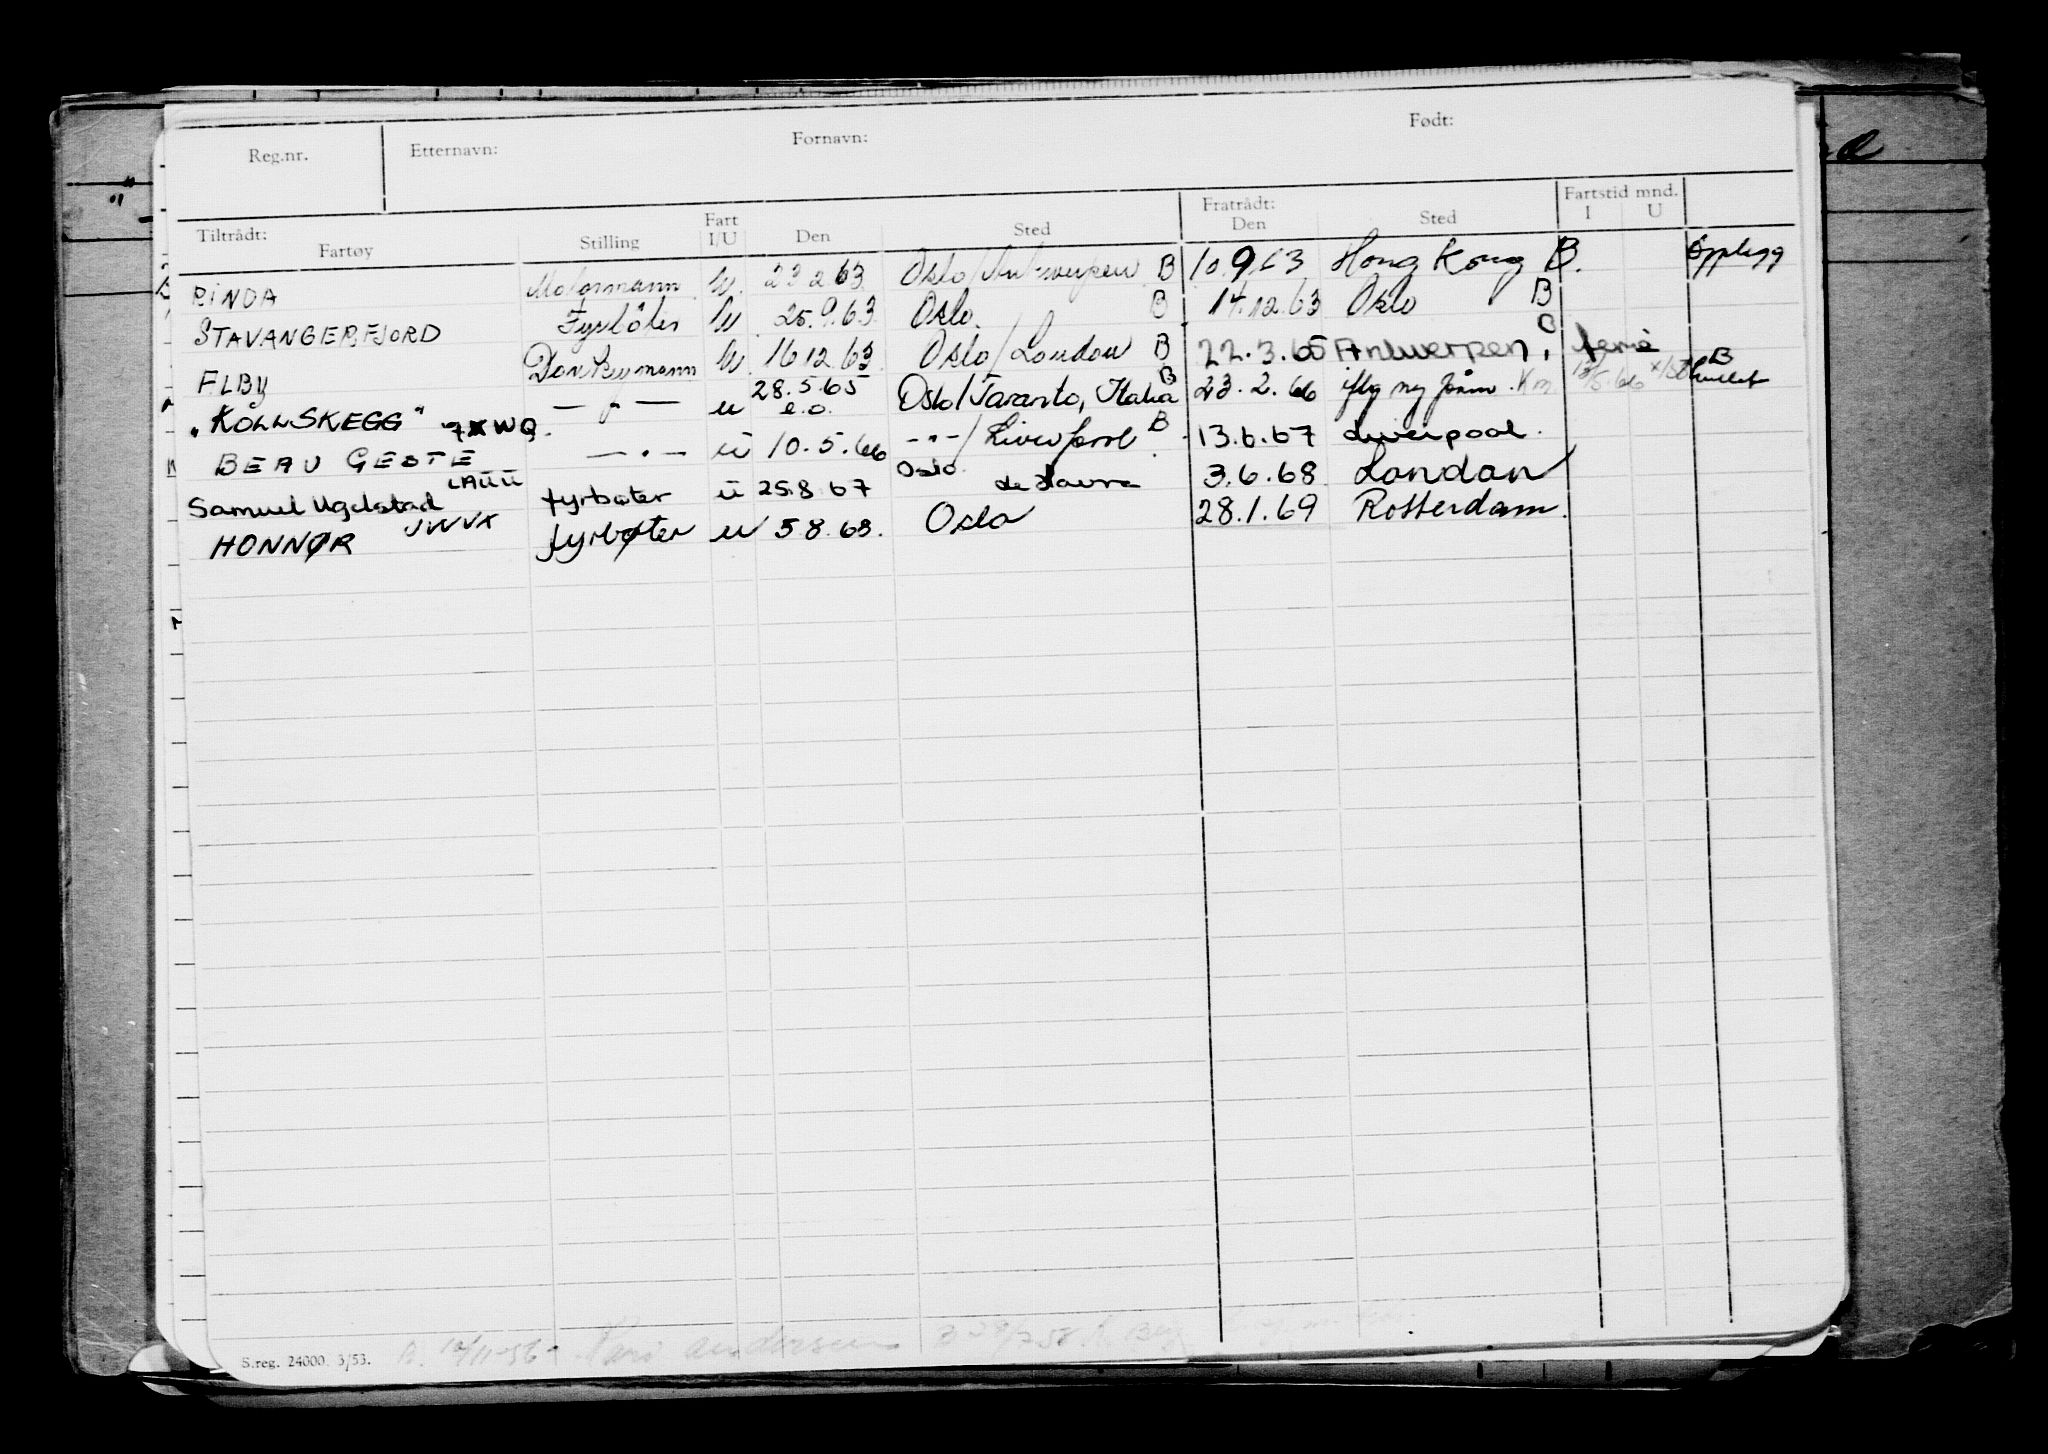 Reg.nr. Etternavn: Fornavn: Født:
Tiltrådt: Fratrådt: Fartstid mnd.
Fartøy Stilling Fart I/U Den Sted Den Sted I U
RINDA Motormann U. 23 2 63 Oslo/Antwerpen B 10.9.63 Hong Kong B. Opplegg
STAVANGERFJORD Fyrböter U 25.9.63 Oslo. B 14.12.63 Oslo B
ELBY Donkeymann U 16 12 63 Oslo/London B 22.3.65 Antwerpen, B ferie
"KOLLSKEGG" 7XWQ — " — u 28.5.65 e.o. Oslo/Taranto, Italia B 23.2.66 iflg ny B
BEAU GESTE — " — ü 10.5.66 -"-/Liverpool B 13.6.67 Liverpool.
Samuel Ugelstad LAÜÜ fyrbøter ü 25.8.67 Oslo Le Havre 3.6.68 London
HONNØR JWVX fyrbøter u 5.8.68. Oslo 28.1.69 Rotterdam.
S.reg. 24000. 3/53.